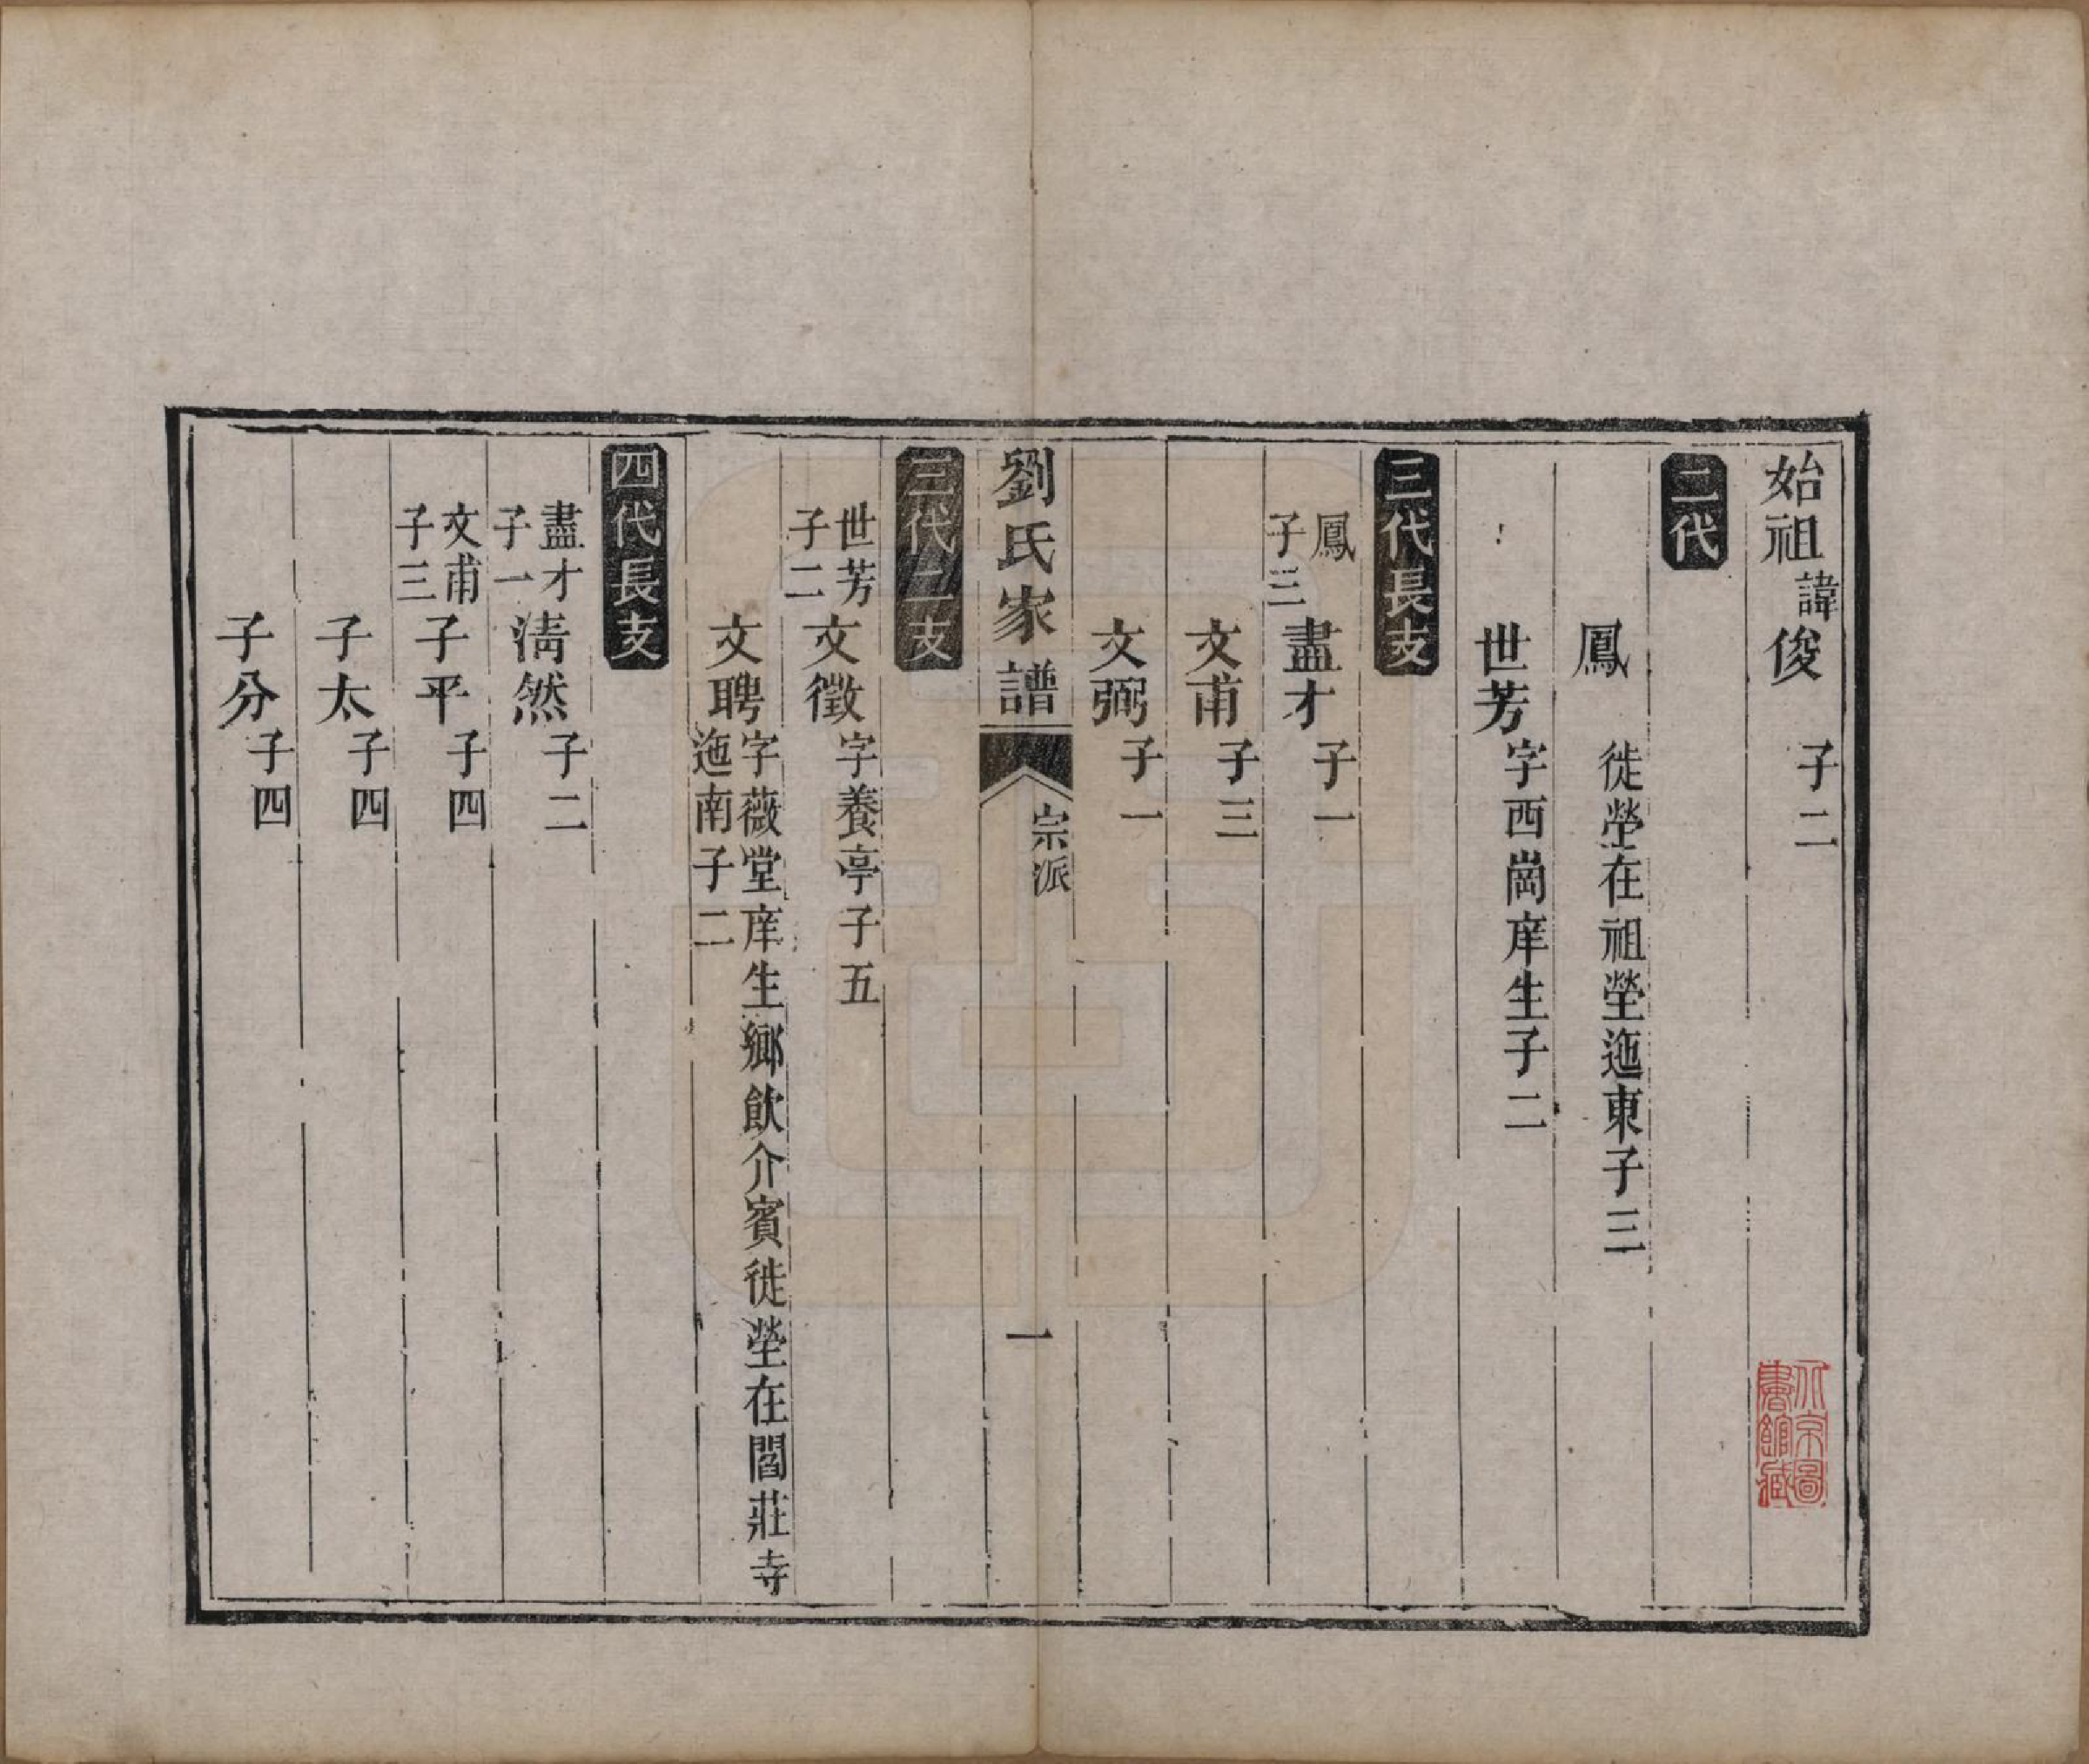 始祖諱俊 子二
二代
鳳 徙塋在祖塋迤東子三
世芳 字西崗庠生子二
三代長支
鳳子三 盡才 子一
文甫 子三
文弼 子一
劉氏家譜 宗派 一
三代二支
世芳子二 文徵 字養亭子五
文聘 字薇堂庠生鄉飲介賓徙塋在閻莊寺迤南子二
四代長支
盡才子一 淸然 子二
文甫子三 子平 子四
子太 子四
子分 子四
北京圖書館藏